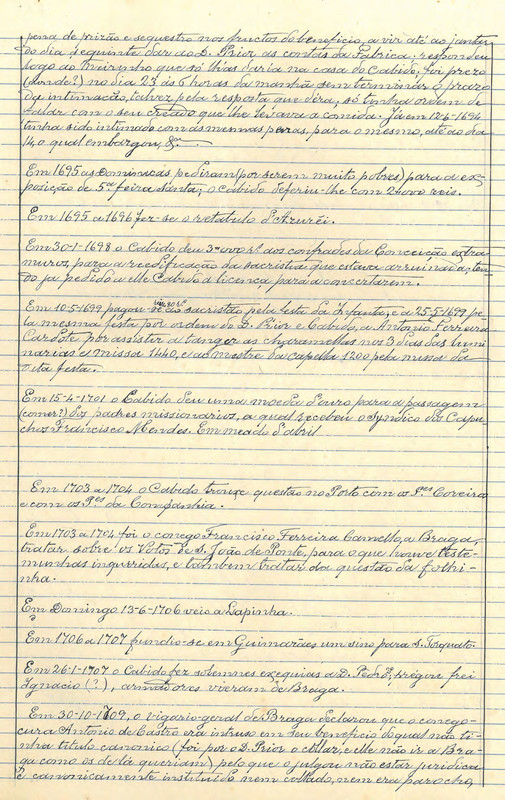 pena de prizão e sequestro nos fructos do beneficio, a vir até ao jantar
do dia seguinte dar ao D. Prior as contas da Fabrica; respondeu
logo ao meirinho que só lh'as daria na casa do Cabido, foi prezo
(aonde?) no dia 23 ás 6 horas da manhã sem terminar o prazo
da intimação, talvez pela resposta que déra, só tinha ordem de
falar com o seu creado que lhe levava a comida. Já em 12-6-1694
tinha sido intimado com as mesmas penas, para o mesmo, até ao dia
14, o qual embargou &ª.
Em 1695 as Dominicas pediram (por serem muito pobres) para a ex-
posição de 5ª feira santa; o Cabido deferiu-lhe com 2:000 reis.
Em 1695 a 1696 fez-se o retabulo d'Azurei.
Em 30-1-1698 o Cabido deu 3:000 rs. aos confrades da Conceição extra
muros, para a reedificação da sacristia que estava arruinada, ten-
do já pedido a elle Cabido a licença para a concertarem.
Em 10-5-1699 pagou-se ao sacristão pela festa da Infanta, e a 25-5-1699 pe-
la mesma festa por ordem do D. Prior e Cabido, a Antonio Ferreira
Cardote por assistir a tanger as charamellas nos 3 dias das lumi
narias e missa 1440, e ao mestre da capella 1200 pela missa da
dita festa.
Em 15-4-1701 o Cabido deu uma moeda d'ouro para a passagem
(comer?) dos padres missionarios, a qual recebeu o Syndico dos Capu-
chos Francisco Mendes. Em meado d'abril
Em 1703 a 1704 o Cabido trouxe questão no Porto com os P.es Coreiros
e com os P.es da Companhia.
Em 1703 a 1704 foi o conego Francisco Ferreira Camello, a Braga,
tratar sobre os Votos de S. João de Ponte, para o que houve teste-
munhas inquiridas, e tambem tratar da questão da folhi-
nha.
Em Domingo 13-6-1706 veio a Lapinha.
Em 1706 a 1707 fundio-se em Guimarães um sino para S. Torquato.
Em 26-1-1707 o Cabido fez solemnes exequias a D. Pedro 2º, prégou frei
Ignacio (?), armadores vieram de Braga.
Em 30-10-1709, o vigario-geral de Braga declarou que o conego-
cura Antonio de Castro era intruso em seu beneficio do qual não ti-
nha titulo canonico (foi por o D. Prior o collar, e elle não ir a Bra-
ga como os de lá queriam) pelo que o julgou não estar juridica
e canonicamente instituido nem collado, nem era parocho,